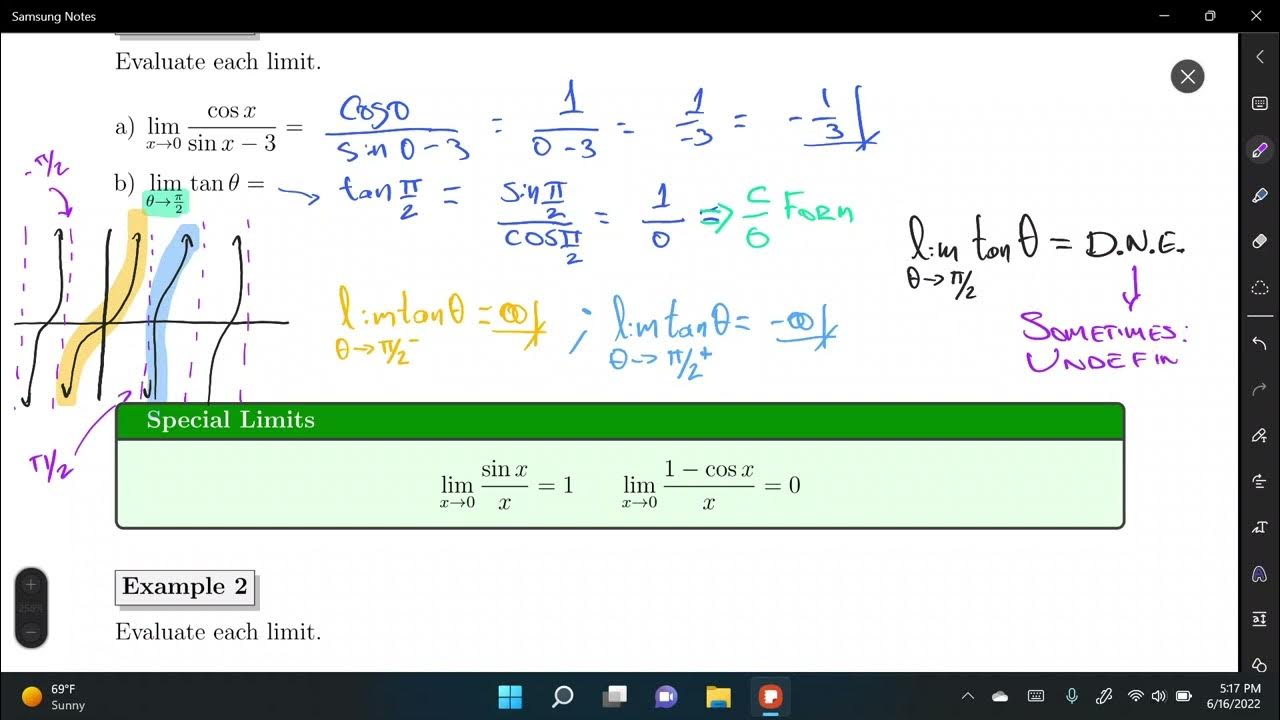 Samsung Notes
Evaluate each limit.
a) lim x→0 cos x / sin x − 3 = cos 0 / sin 0 − 3 = 1 / 0 − 3 = 1 / −3 = − 1/3
−π/2
b) lim θ→π/2 tan θ = → tan π/2 = sin π/2 / cos π/2 = 1/0 ⇒ C/0 FORM
lim θ→π/2 tan θ = D.N.E.
lim θ→π/2⁻ tan θ = ∞ ; lim θ→π/2⁺ tan θ = −∞
SOMETIMES:
UNDEFIN
π/2
Special Limits
lim x→0 sin x / x = 1 lim x→0 1 − cos x / x = 0
Example 2
Evaluate each limit.
69°F
Sunny
5:17 PM
6/16/2022